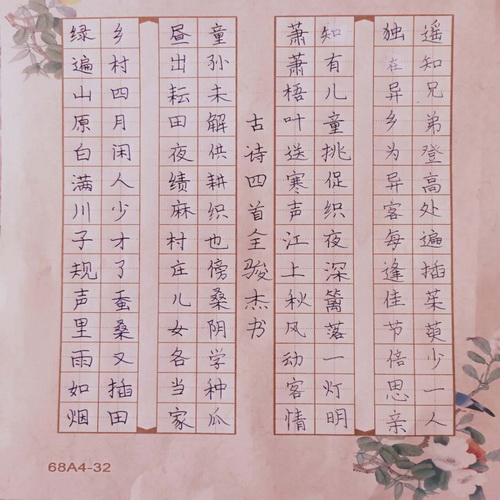 绿遍山原白满川子规声里雨如烟
乡村四月闲人少才了蚕桑又插田
昼出耘田夜绩麻村庄儿女各当家
童孙未解供耕织也傍桑阴学种瓜
古诗四首全骏杰书
萧萧梧叶送寒声江上秋风动客情
知有儿童挑促织夜深篱落一灯明
独在异乡为异客每逢佳节倍思亲
遥知兄弟登高处遍插茱萸少一人
68A4-32